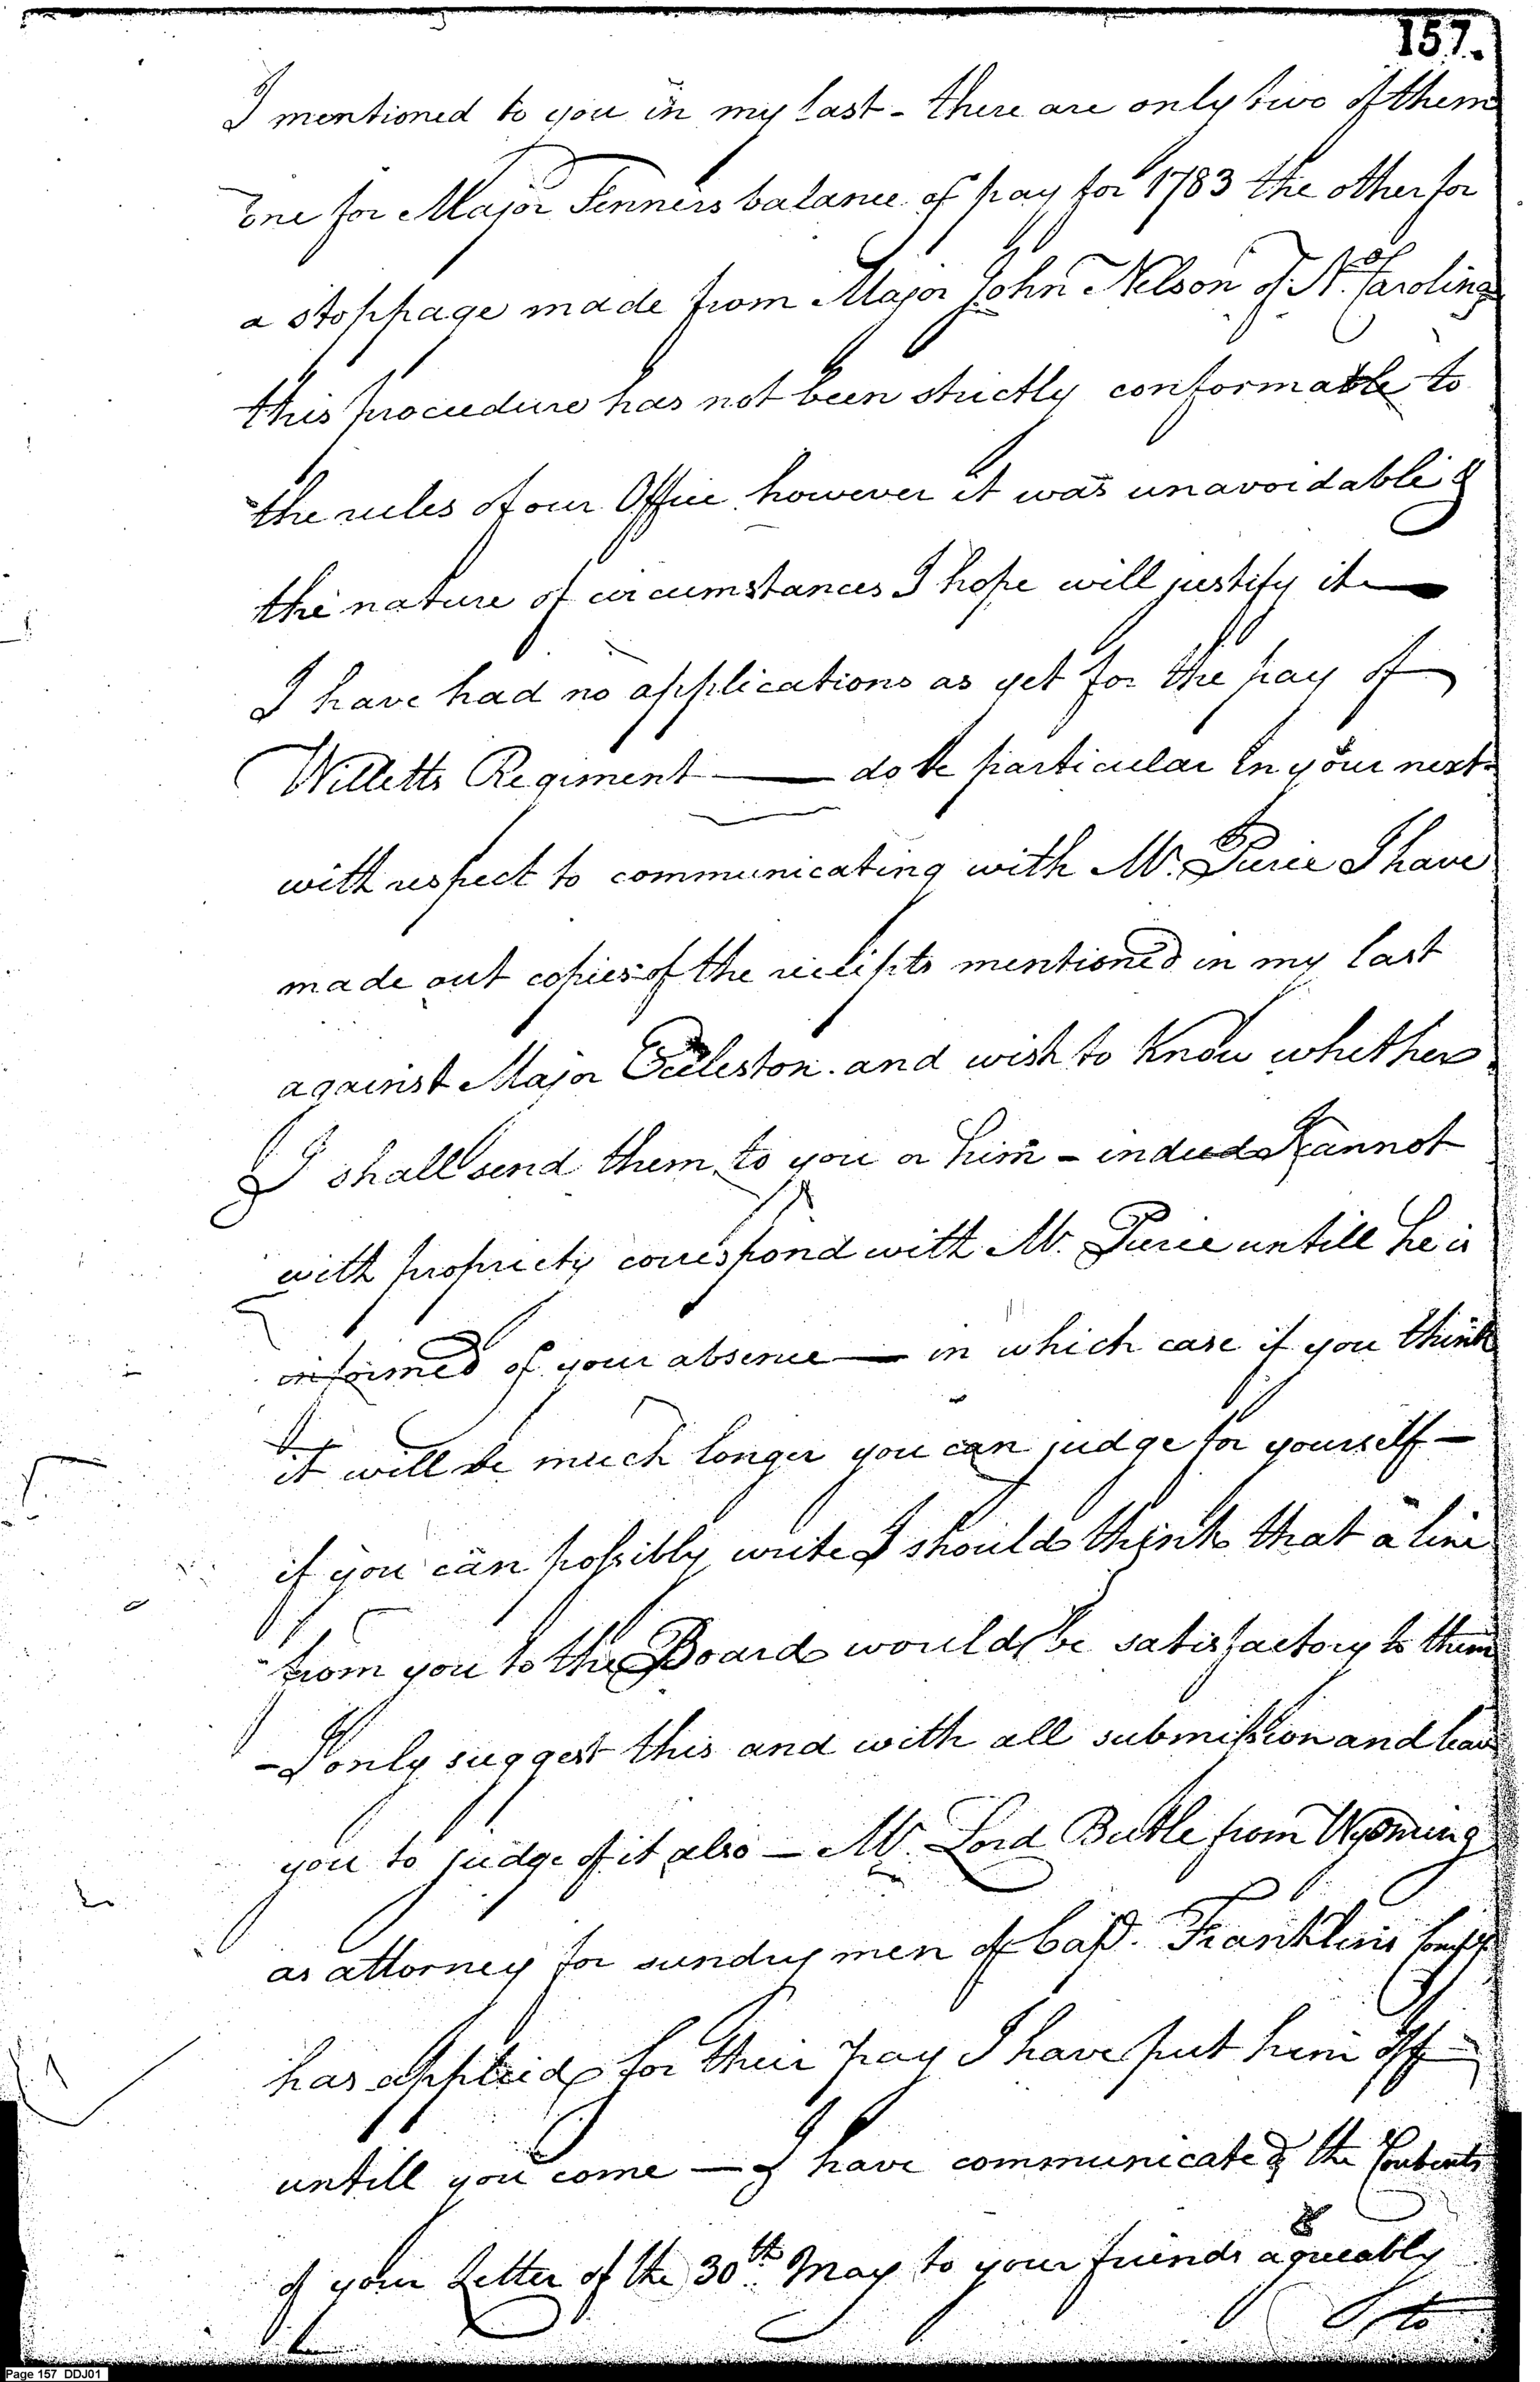 157.
I mentioned to you in my last - there are only two of them
one for Major Fenners balance of pay for 1783 the other for
a stoppage made from Major John Nelson of N. Carolina
this procedure has not been strictly conformable to
the rules of our Office however it was unavoidable &
the nature of circumstances I hope will justify it —
I have had no applications as yet for the pay of
Willetts Regiment — do be particular in your next
with respect to communicating with Mr. Pierce I have
made out copies of the reciepts mentioned in my last
against Major Eccleston. and wish to know whether
I shall send them to you or him - indeed I cannot
with propriety correspond with Mr. Pierce untill he is
informed of your absence — in which case if you think
it will be much longer you can judge for yourself —
if you can possibly write I should think that a line
from you to the Board would be satisfactory to them
- I only suggest this and with all submission and leave
you to judge of it also — Mr. Lord Butle from Wyoming
as attorney for sundry men of Capt. Franklins Compy
has applied for their pay I have put him off
untill you come — I have communicated the Contents
of your Letter of the 30th. May to your friends agreeably
to
Page 157 DDJ01